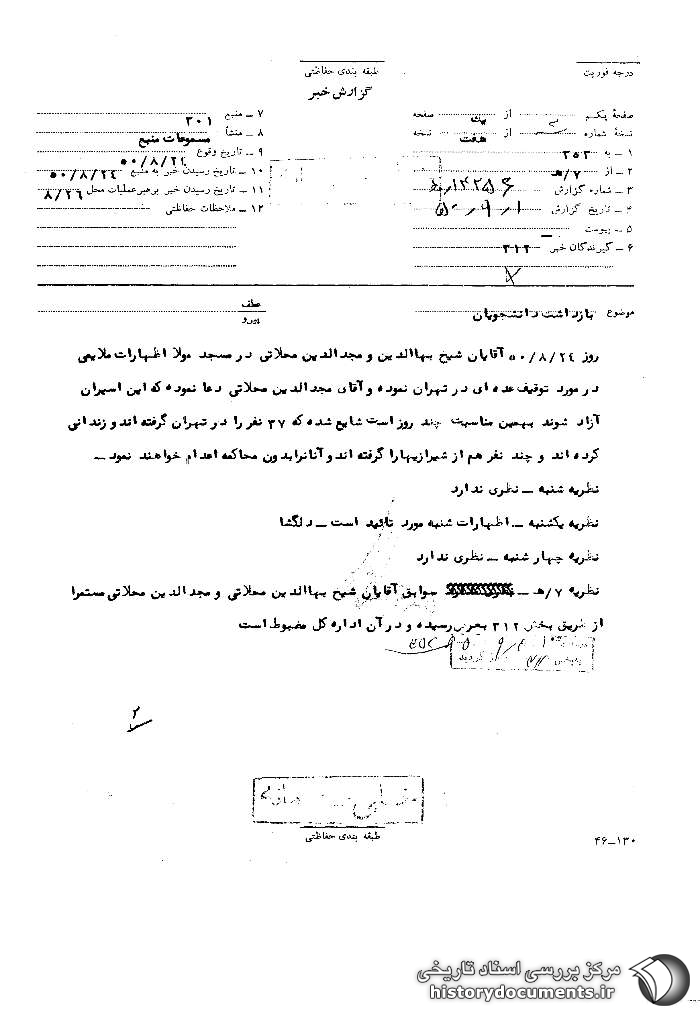 درجه فوریت
طبقه بندی حفاظتی
گزارش خبر
صفحهٔ یکم از یک صفحه
نسخهٔ شماره ۲ از هفت نسخه
۱ ــ به ۳۵۲
۲ ــ از ۷/هـ
۳ ــ شماره گزارش
۴ ــ تاریخ گزارش ۵۰.۹.۱
۵ ــ پیوست ــ
۶ ــ گیرندگان خبر ۳۱۲
۷ ــ منبع ۲۰۱
۸ ــ منشأ مسموعات منبع
۹ ــ تاریخ وقوع ۵۰/۸/۲۴
۱۰ ــ تاریخ رسیدن خبر به منبع ۵۰/۸/۲۴
۱۱ ــ تاریخ رسیدن خبر برهبر عملیات محل ۸/۲۶
۱۲ ــ ملاحظات حفاظتی
موضوع بازداشت دانشجویان
عطف
پیرو
روز ۵۰/۸/۲۴ آقایان شیخ بهاالدین و مجدالدین محلاتی در مسجد مولا اظهارات ملایمی
در مورد توقیف عده ای در تهران نموده و آقای مجدالدین محلاتی دعا نموده که این اسیران
آزاد شوند بهمین مناسبت چند روز است شایع شده که ۳۷ نفر را در تهران گرفته اند و زندانی
کرده اند و چند نفر هم از شیرازیها را گرفته اند و آنانرا بدون محاکمه اعدام خواهند نمود ــ
نظریه شنبه ــ نظری ندارد
نظریه یکشنبه ــ اظهارات شنبه مورد تائید است ــ دلگشا
نظریه چهارشنبه ــ نظری ندارد
نظریه ۷/هـ ــ سوابق آقایان شیخ بهاالدین محلاتی و مجدالدین محلاتی مستمرا
از طریق بخش ۳۱۲ بعرض رسیده و در آن اداره کل مضبوط است
۲
طبقه بندی حفاظتی
۴۶ــ۱۳۰
مرکز بررسی اسناد تاریخی
historydocuments.ir